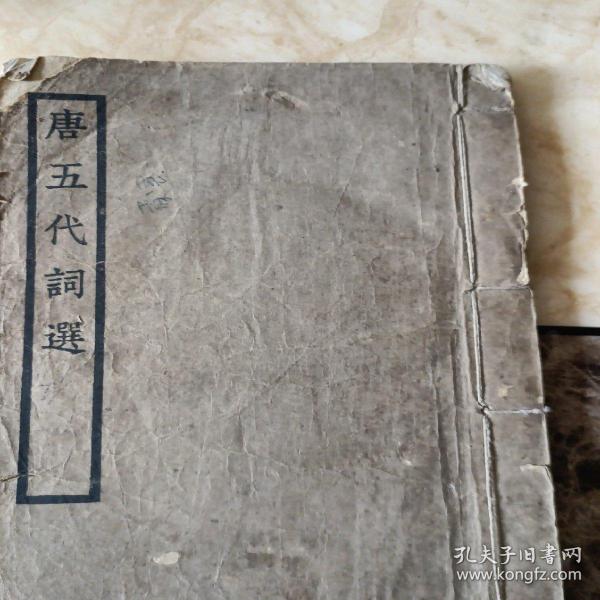 唐五代詞選
孔夫子旧書网
www.kongfz.com